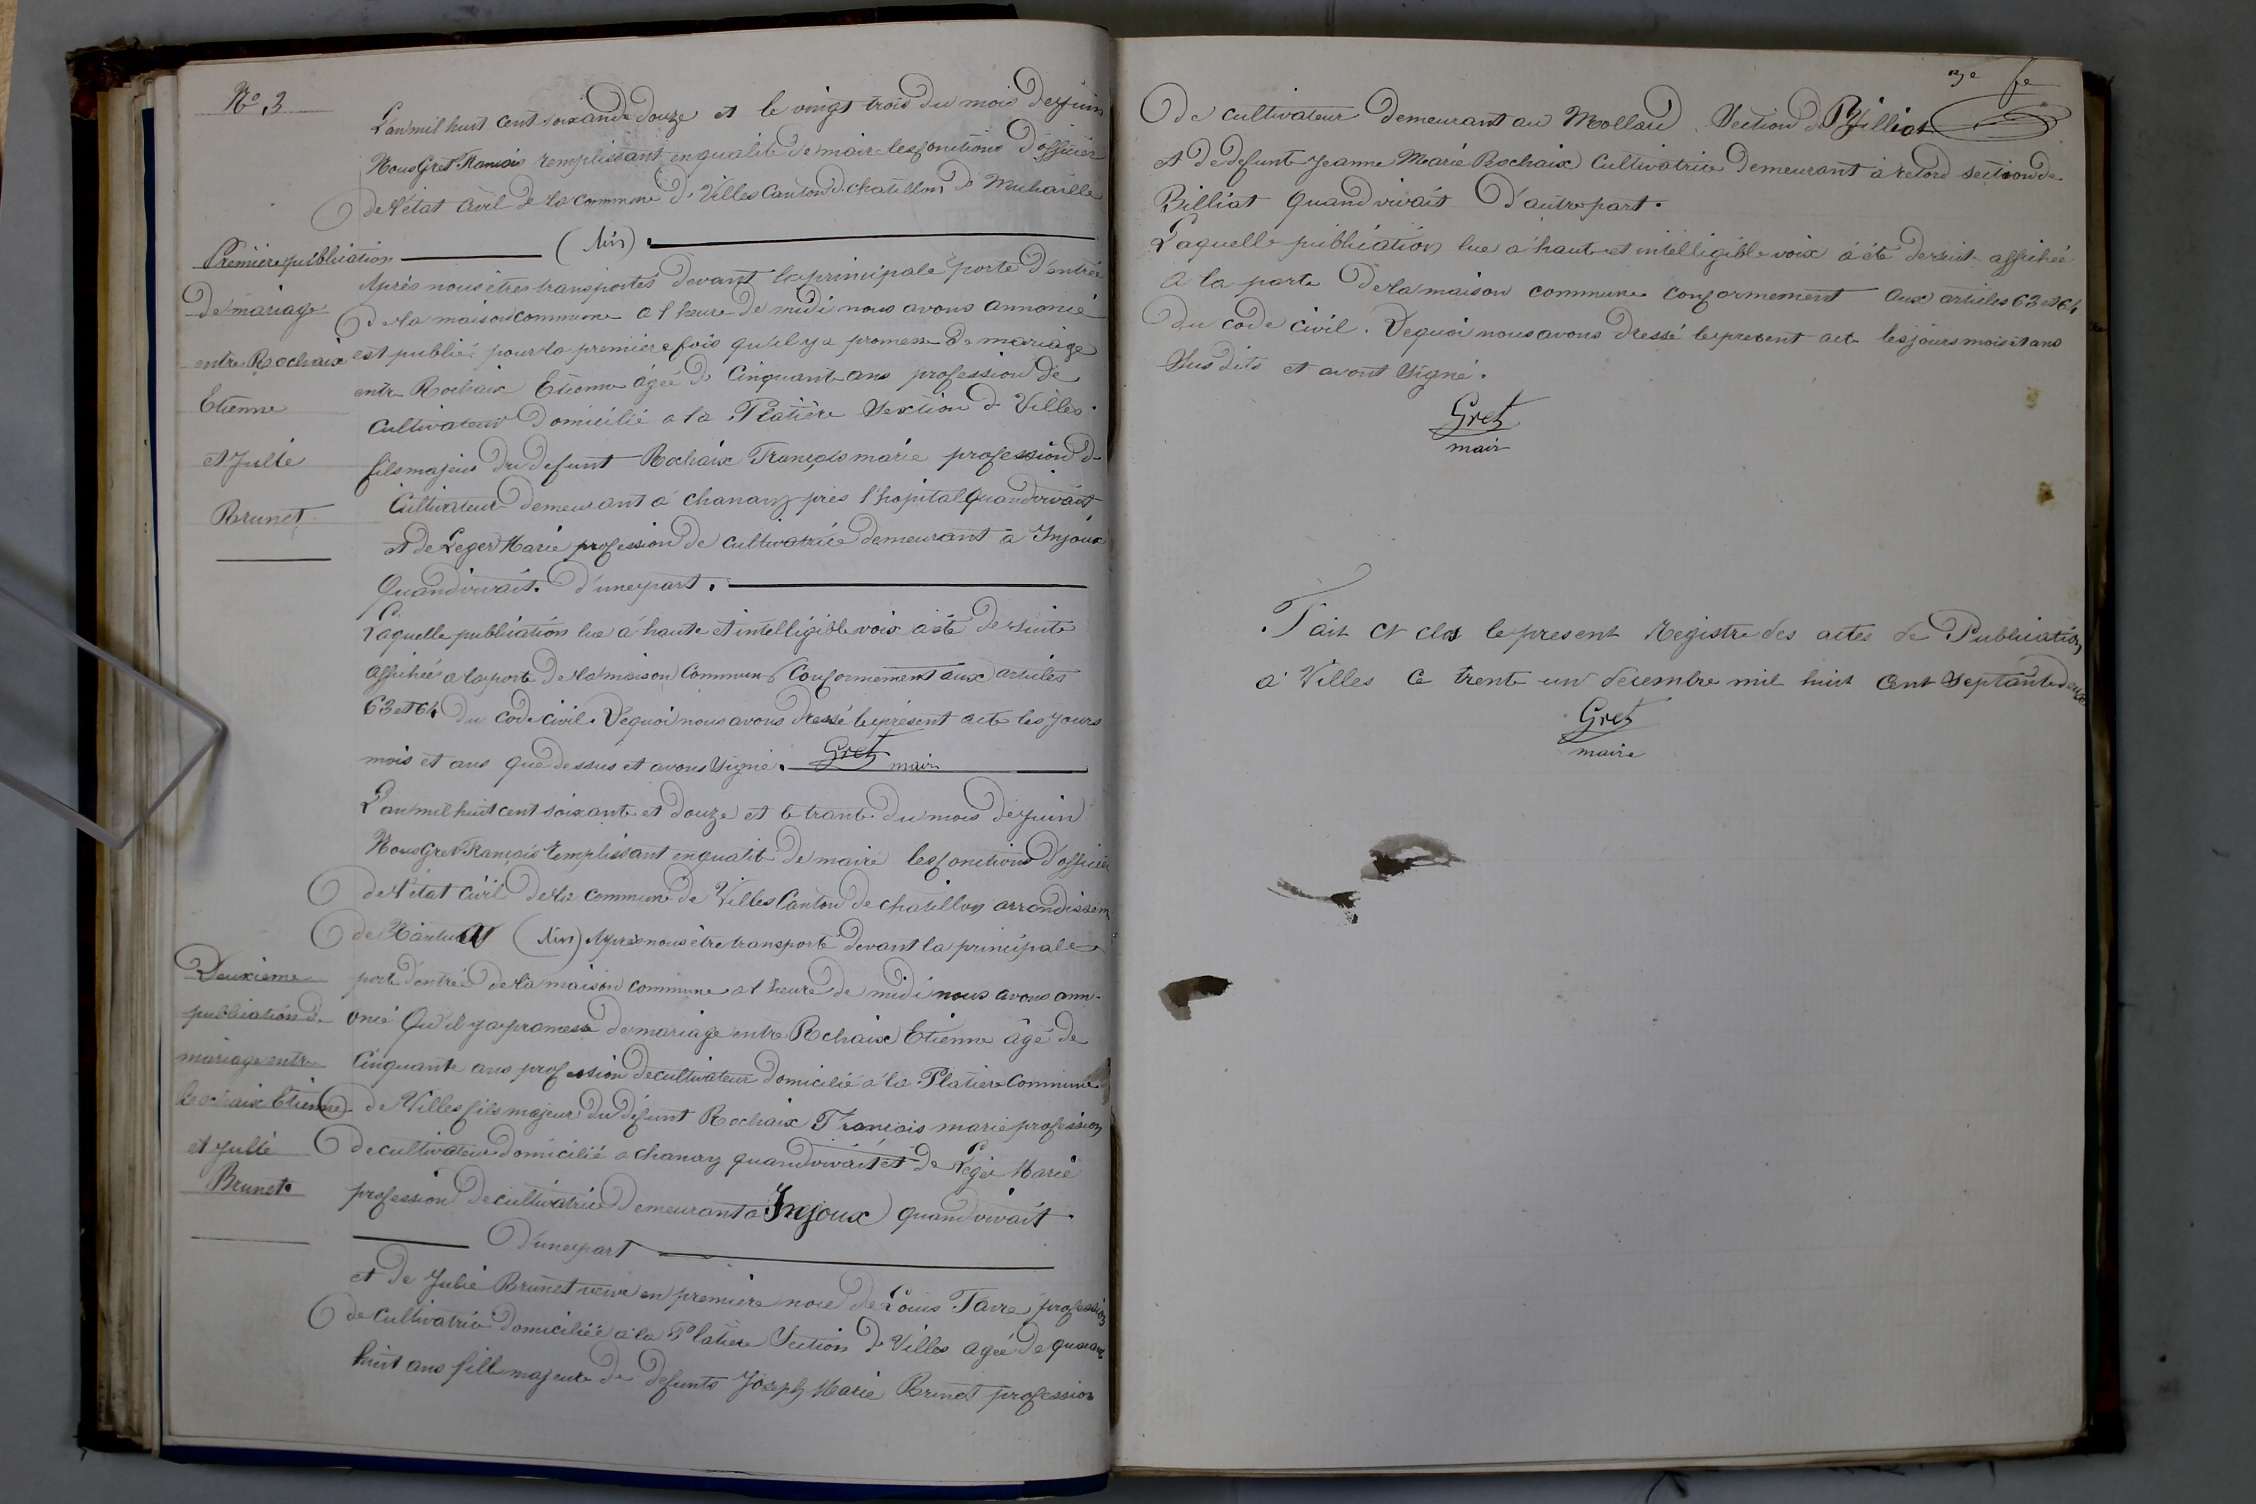 N° 3
L'an mil huit cent soixante douze et le vingt trois du mois de juin
Nous Gret François remplissant en qualité de maire les fonctions d'officier
de l'état civil de la commune de Villes Canton de chatillon de Michaille
(Ain)
Première publication
de mariage
entre Rochaix
Etienne
et Julie
Brunet
Après nous êtres transportés devant la principale porte d'entrée
de la maison commune a l'heure de midi nous avons annoncé
est publié pour la première fois qu'il y a promesse de mariage
entre Rochaix Etienne âgée de Cinquante ans profession de
cultivateur domicilié a la Platière Section de Villes.
fils majeur du defunt Rochaix François marie profession de
Cultivateur demeurant a chanay près l'hopital quand vivait,
et de Leger Marie profession de cultivatrice demeurant a Injoux
quand vivait. d'une part.
Laquelle publication lue a haute et intelligible voix a été de suite
affichée a la porte de la maison commune conformement aux articles
63 et 64 du code civil. De quoi nous avons dressé le présent acte les jours
mois et ans que dessus et avons signé. Gret mair
L'an mil huit cent soixante et douze et le trante du mois de juin
Nous Gret François remplissant en qualité de maire les fonctions d'officier
de l'état civil de la commune de Villes Canton de chatillon arrondissem
de Nantua (Ain) Après nous être transporté devant la principale
Deuxieme
publication de
mariage entre
Rochaix Etienne
et Julie
Brunet.
porte d'entrée de la maison commune a l'heure de midi nous avons ann-
oncé qu'il y a promesse de mariage entre Rochaix Etienne âgé de
Cinquante ans profession de cultivateur domicilié a la Platiere Commune
de Villes fils majeur du défunt Rochaix François marie profession
de cultivateur domicilié a chanay quand vivait et de Leger Marie
profession de cultivatrice demeurant a Injoux quand vivait
d'une part
et de Julie Brunet veuve en premiere noce de Louis Favre profession
de cultivatrice domiciliée a la Platiere Section de Villes agée de quarante
huit ans fille majeure de defunts Joseph Marie Brunet profession
de cultivateur demeurant au Mollard Section de Billiat
et de defunte Jeanne Marie Rochaix Cultivatrice demeurant à retord section de
Billiat quand vivait d'autre part.
Laquelle publication lue a haute et intelligible voix à été de suite affichée
A la porte de la maison commune conformement aux articles 63 et 64
du code civil. De quoi nous avons dressé le present acte les jours mois et ans
susdits et avont signé.
Gret
mair
Fait et clos le present Registre des actes de Publication
a Villes ce trente un decembre mil huit cent septante deux
Gret
maire